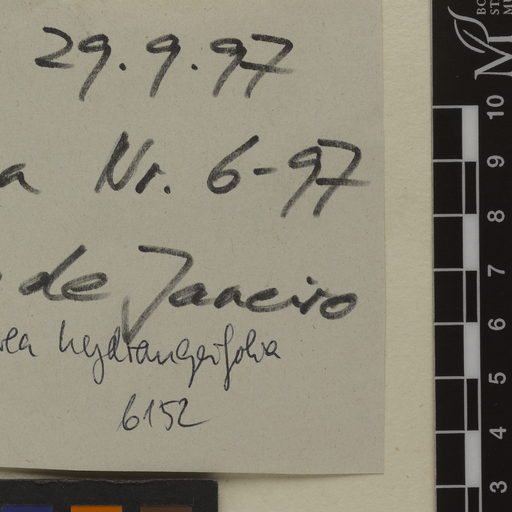 29.9.97
a Nr. 6-97
de Janeiro
ea hydrangeifolia
6152
BO
ST
M
10
9
8
7
6
5
4
3